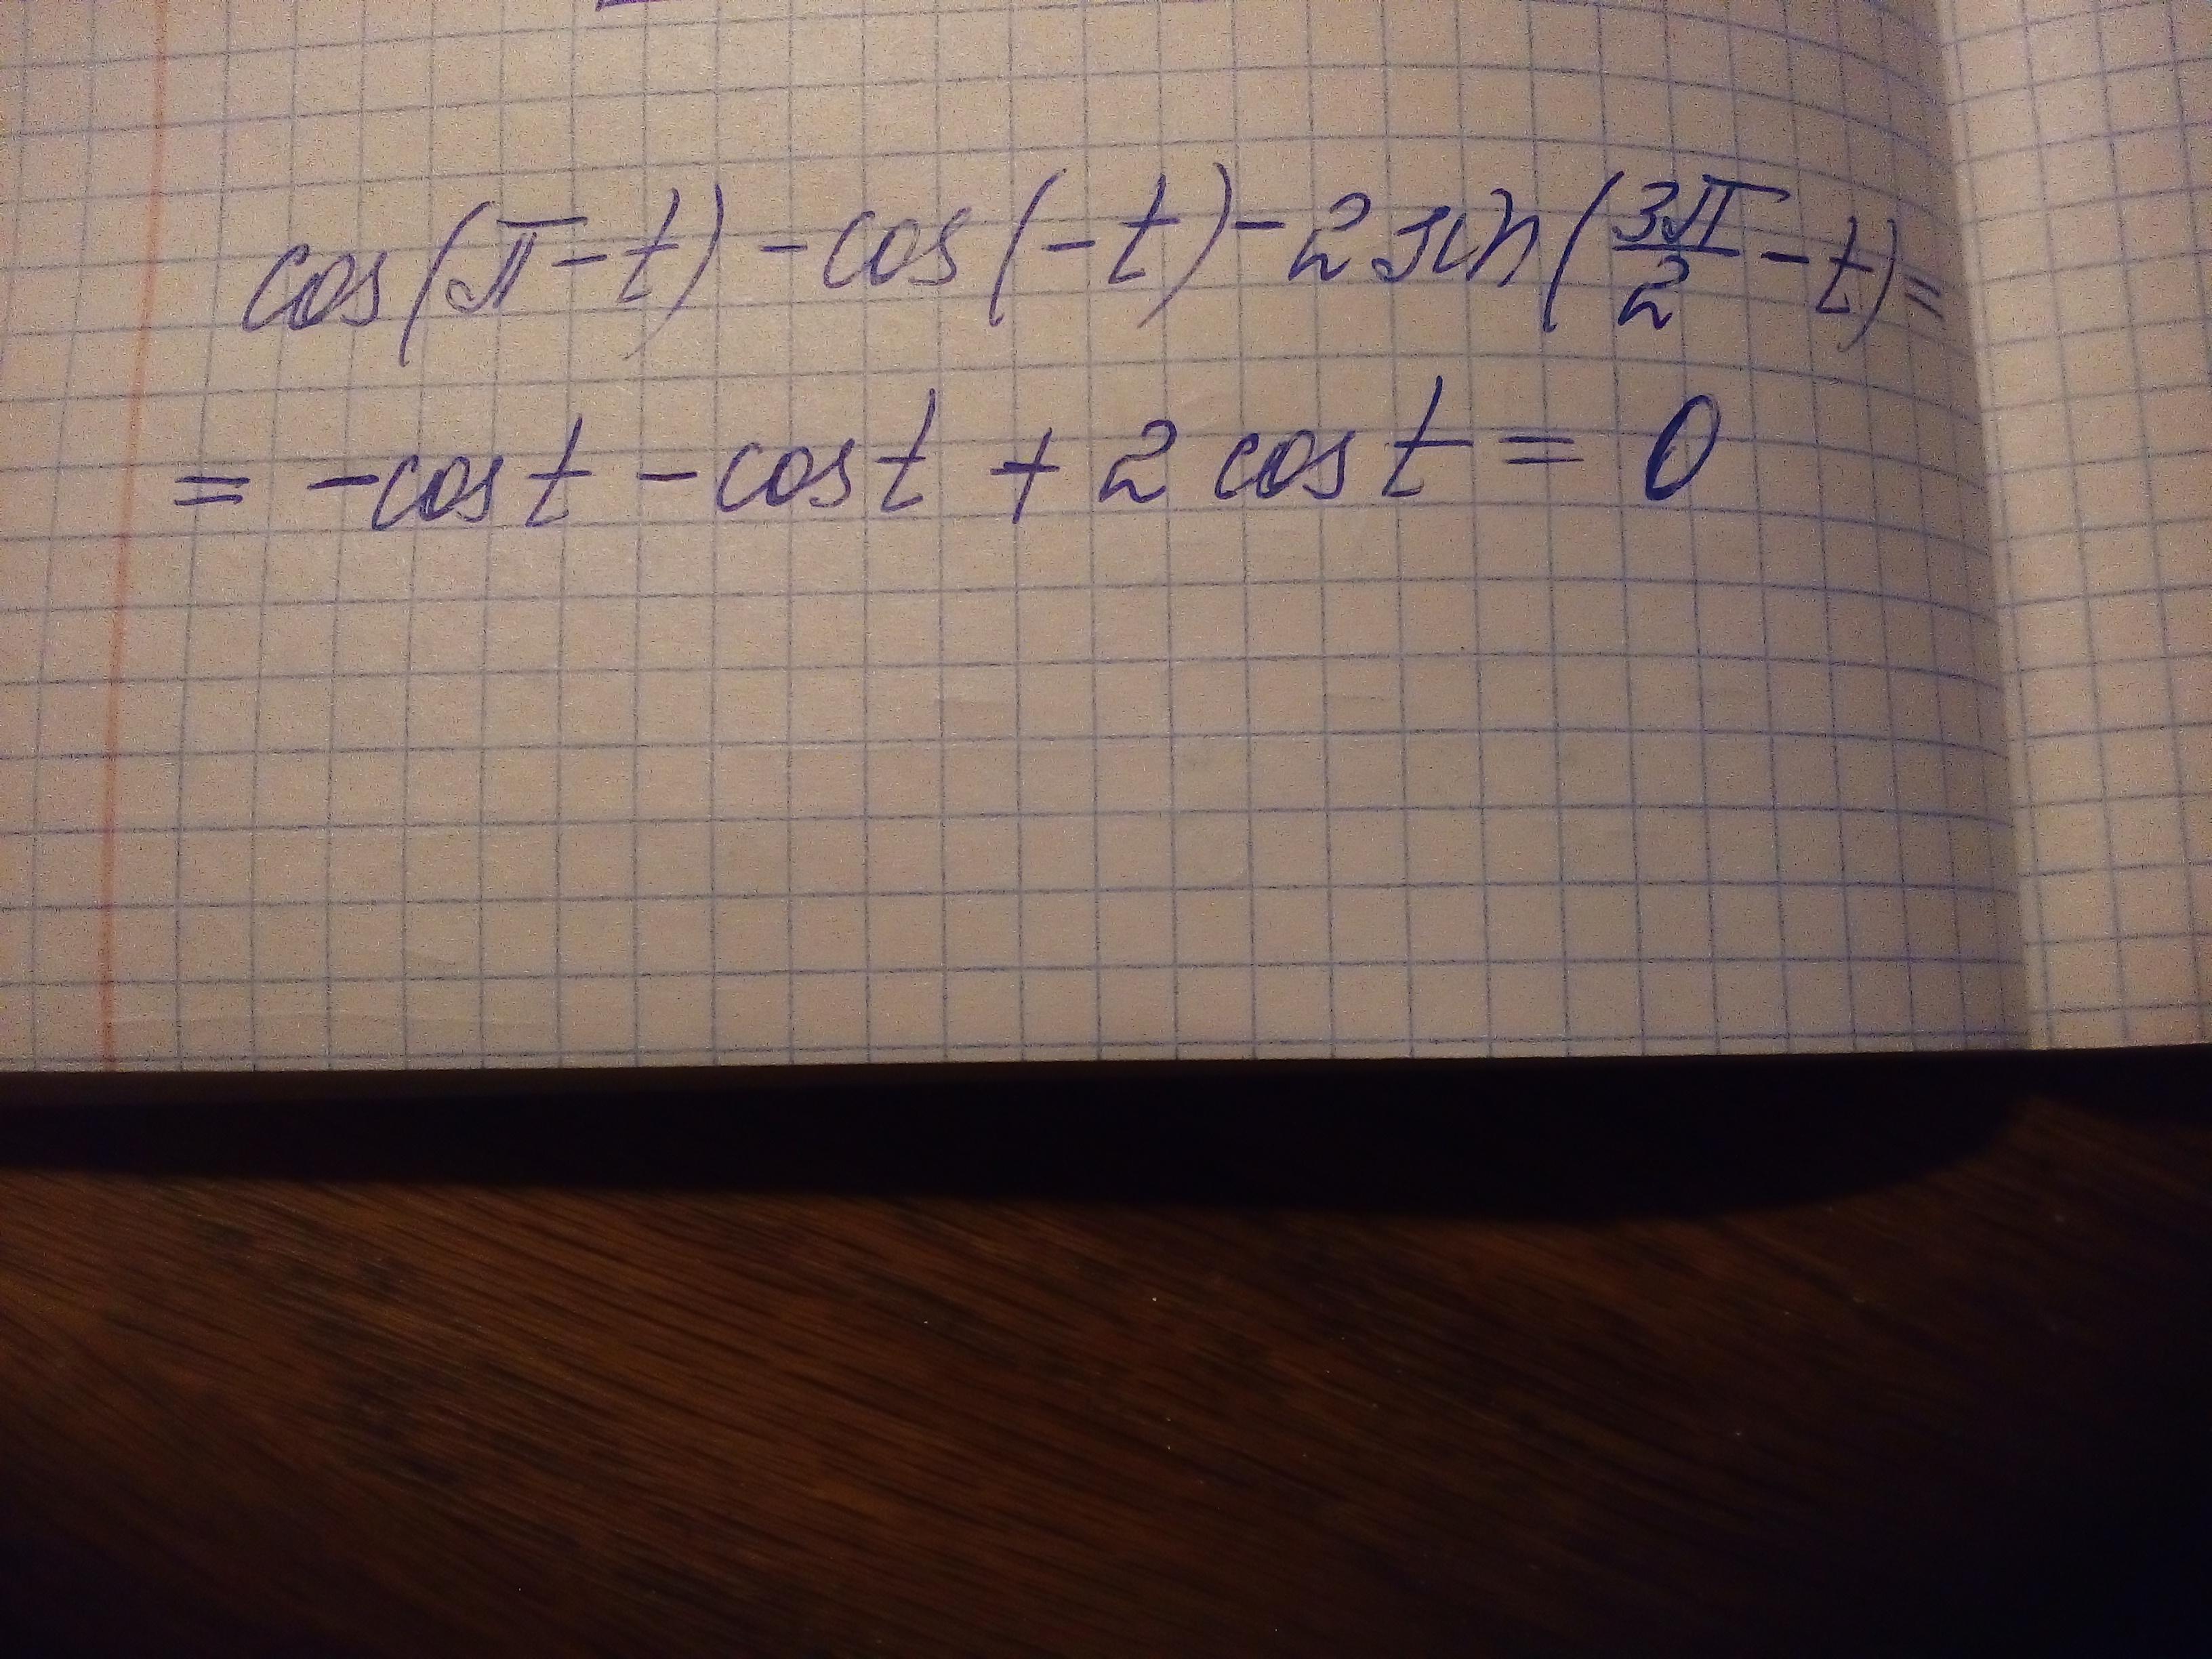 cos(π-t)-cos(-t)-2sin(3π/2-t)=
=-cost-cost+2cost=0